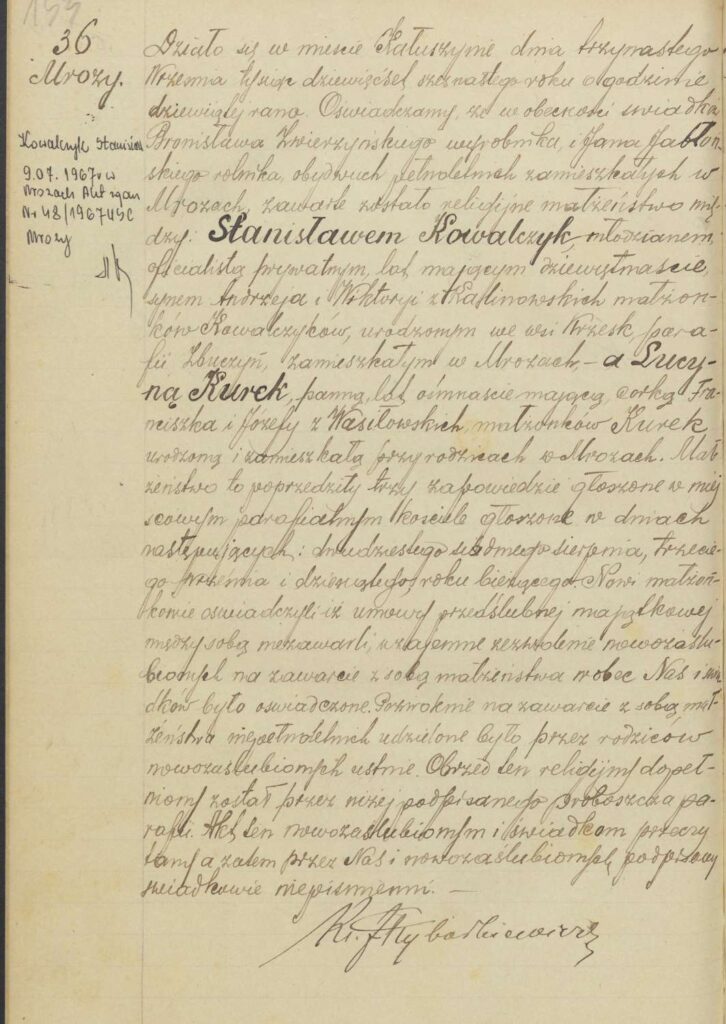 36
Mrozy.
Kowalczyk Stanisław
9.07.1967 r w
Mrozach Akt zgonu
Nr 48/1967 USC
Mrozy
Działo się w mieście Kałuszynie dnia trzynastego
Września tysiąc dziewięćset szesnastego roku o godzinie
dziewiątej rano. Oświadczamy, że w obecności świadków
Bronisława Zwierzyńskiego wyrobnika, i Jana Jabłoń-
skiego rolnika, obydwuch pełnoletnich zamieszkałych w
Mrozach, zawarte zostało religijne małżeństwo mię-
dzy: Stanisławem Kowalczyk, młodzianem,
oficialistą prywatnym, lat mającym dziewiętnaście,
synem Andrzeja i Wiktoryi z Kalinowskich małżon-
ków Kowalczyków, urodzonym we wsi Krzesk, para-
fii Zbuczyń, zamieszkałym w Mrozach, – a Lucy-
ną Kurek, panną, lat ośmnaście mającą, córką Fra-
nciszka i Józefy z Wasiłowskich, małżonków Kurek
urodzoną i zamieszkałą przy rodzicach w Mrozach. Mał
żeństwo to poprzedziły trzy zapowiedzie głoszone w miej
scowym parafialnym kościele głoszone w dniach
następujących: dwudziestego siódmego sierpnia, trzecie-
go września i dziesiątego, roku bieżącego. Nowi małżoń-
kowie oświadczyli iż umowy przedślubnej majątkowej
między sobą niezawarli, wzajemne zezwolenie nowozaślu-
bionych na zawarcie z sobą małżeństwa wobec Nas i świa
dków było oświadczone. Pozwolenie na zawarcie z sobą mał-
żeństwa niepełnoletnich udzielone było przez rodziców
nowozaślubionych ustnie. Obrzęd ten religijny dopeł-
niony został przez niżej podpisanego Proboszcza pa-
rafii. Akt ten nowozaślubionym i świadkom przeczy
tany a zatem przez Nas i nowozaślubionych podpisany
świadkowie niepiśmienni. —
Ks. J